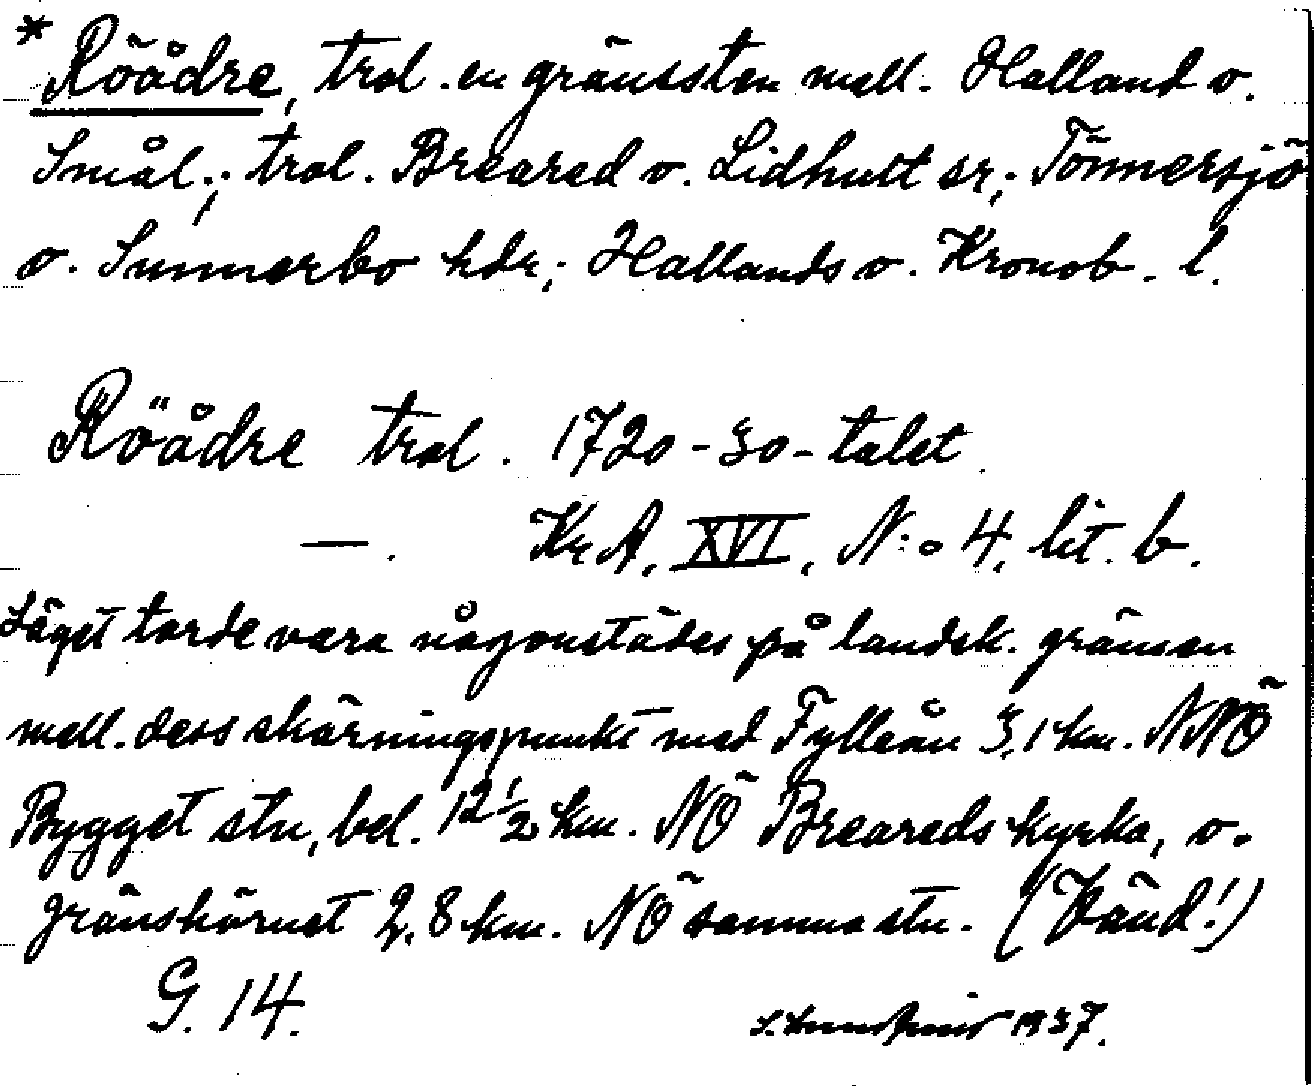 * Röådre, trol. en gränssten mell. Halland o.
Smål.; trol. Breared o. Lidhult sr; Tönnersjö
o. Sunnerbo hdr; Hallands o. Kronob. l.
Röådre trol. 1720-30-talet.
—. KrA, XVI, N:o 4, lit. b.
Läget torde vara någonstädes på landsk. gränsen
mell. dess skärningspunkt med Fylleån 3,1 km. NNÖ
Bygget stn, bel. 12 1/2 km. NÖ Breareds kyrka, o.
gränshörnet 2,8 km. NÖ samma stn. (Vänd!)
G. 14.
1937.